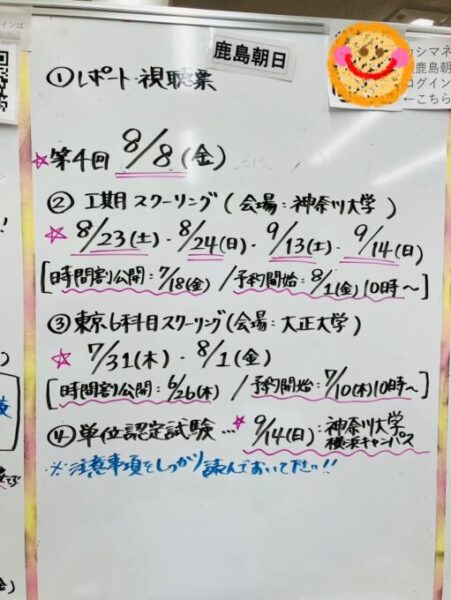 鹿島朝日
カシマネ
鹿島朝
ログイン
←こちら
① レポート・視聴票
☆第4回 8/8(金)
② Ⅰ期目スクーリング(会場:神奈川大学)
☆ 8/23(土)・8/24(日)・9/13(土)・9/14(日)
[時間割公開:7/18(金) / 予約開始:8/1(金)10時〜]
③ 東京6科目スクーリング(会場:大正大学)
☆ 7/31(木)・8/1(金)
[時間割公開:6/26(木) / 予約開始:7/10(木)10時〜]
④ 単位認定試験…☆9/14(日):神奈川大学
横浜キャンパス
※注意事項をしっかり読んでおいて下さい!!